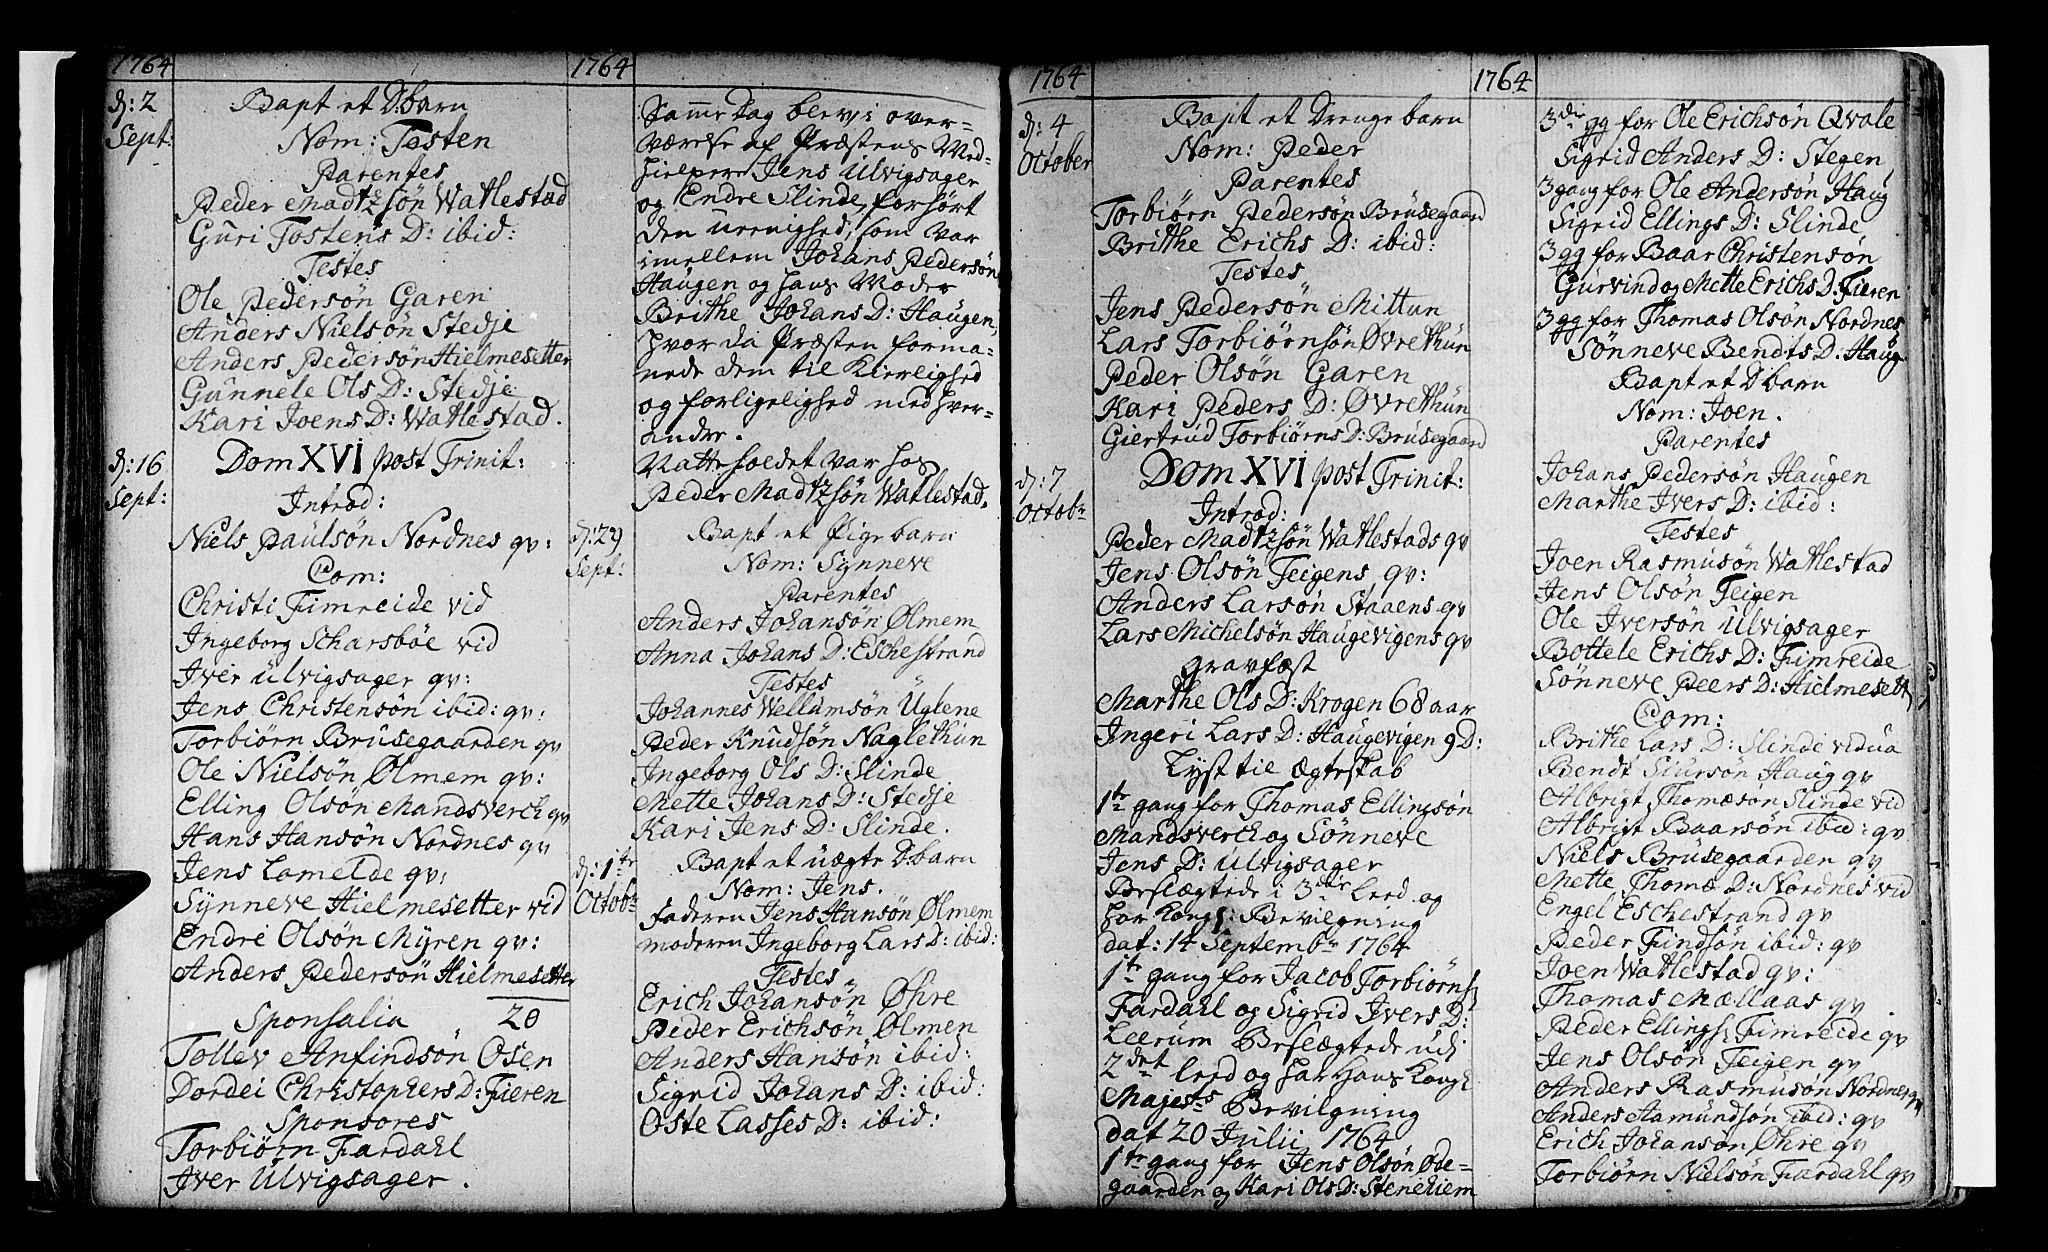 1764
d: 2 Sept:
Bapt et D:barn
Nom: Tosten
Parentes
Peder Madtzsøn Watlestad
Guri Tostens D: ibid:
Testes
Ole Pedersøn Garen
Anders Nielsøn Stedje
Anders Pedersøn Hielmesetter
Gunnele Ols D: Stedje
Kari Joens D: Watlestad.
d: 16 Sept:
Dom XVI post Trinit:
Introd:
Niels Paulsøn Nordnes qv:
Com:
Christi Fimreide vid
Ingeborg Scharsbøe vid
Iver Ulvigsager qv:
Jens Christensøn ibid: qv:
Torbiørn Brusegaarden qv
Ole Nielsøn Ølmem qv:
Elling Olsøn Mandsverck qv
Hans Hansøn Nordnes qv
Jens Lomelde qv:
Synneve Hielmesetter vid
Endre Olsøn Myren qv:
Anders Pedersøn Hielmesetter
20
Sponsalia
Tollev Anfindsøn Osen
Dordei Christophers D: Fieren
Sponsores
Torbiørn Fardahl
Iver Ulvigsager.
1764
Samme Dag blev i over-
værelse af Præstens Med-
hielpere Jens Ulvigsager
og Endre Slinde, forhørt
den uenighed, som var
imellem Johans Pedersøn
Haugen og hans Moder
Brithe Johans D: Haugen,
hvor da Præsten forma-
nede dem til Kierlighed
og forligelighed med hver-
andre.
Natteholdet var hos
Peder Madtzsøn Watlestad.
d: 29 Sept:
Bapt et Pigebarn
Nom: Synneve
Parentes
Anders Johansøn Ølmem
Anna Johans D: Eschestrand
Testes
Johannes Wellumsøn Uglene
Peder Knudsøn Naglethun
Ingeborg Ols D: Slinde
Mette Johans D: Stedje
Kari Jens D: Slinde.
d: 1te Octobr
Bapt et uægte D:barn
Nom: Jens.
Faderen Jens Hansøn Ølmem
moderen Ingeborg Lars D: ibid:
Testes
Erich Johansøn Øhre
Peder Erichsøn Ølmen
Anders Hansøn ibid:
Sigrid Johans D: ibid:
Oste Lasses D: ibid:
1764
d: 4 October
Bapt et Drengebarn
Nom: Peder
Parentes
Torbiørn Pedersøn Brusegaard
Brithe Erichs D: ibid:
Testes
Jens Pedersøn Mittun
Lars Torbiørnsøn Øvrethun
Peder Olsøn Garen
Kari Peders D: Øvrethun
Giertrud Torbiørns D: Brusegaard
d: 7 Octobr
Dom XVI post Trinit:
Introd:
Peder Madtzsøn Watlestads qv
Jens Olsøn Teigens qv:
Anders Larsøn Staaens qv
Lars Michelsøn Haugevigens qv
gravfæst
Marthe Ols D: Krogen 68 aar
Ingeri Lars D: Haugevigen 9 D:
Lyst til Ægteskab
1te gang for Thomas Ellingsøn
Mandsverck og Sønneve
Jens D: Ulvigsager
Beslægtede i 3die Leed og
har Kongl: Bevilgning
dat: 14 Septembr 1764
1te gang for Jacob Torbiørns:
Fardahl og Sigrid Ivers D:
Leerum Beslægtede udi
2det Leed og har Hans Kongl
Majests Bevilgning
dat 20 Julii 1764
1te gang for Jens Olsøn Øde-
gaarden og Kari Ols D: Stenehiem
1764
3die gg for Ole Erichsøn Qvale
Sigrid Anders D: Stegen
3 gang for Ole Andersøn Haug
Sigrid Ellings D: Slinde
3 gg for Baar Christensøn
Gurvind og Mette Erichs D: Fieren
3 gg for Thomas Olsøn Nordnes
Sønneve Bendts D: Haug
Bapt et D barn
Nom: Joen.
Parentes
Johans Pedersøn Haugen
Marthe Ivers D: ibid:
Testes
Joen Rasmusøn Watlestad
Jens Olsøn Teigen
Ole Iversøn Ulvigsager
Bottele Erichs D: Fimreide
Sønneve Peers D: Hielmesett
Com:
Brithe Lars D: Slinde vidua
Bendt Siursøn Haug qv
Albrigt Thomæsøn Slinde vid
Albrigt Baarsøn ibid: qv
Niels Brusegaarden qv
Mette Thomæ D: Nordnes vid
Engel Eschestrand qv
Peder Findsøn ibid: qv
Joen Watlestad qv:
Thomas Mællaas qv
Peder Ellings: Fimreide qv
Jens Olsøn Teigen qv
Anders Rasmusøn Nordnes qv
Anders Aamundsøn ibid: qv
Erich Johansøn Øhre qv
Torbiørn Nielsøn Fardahl qv